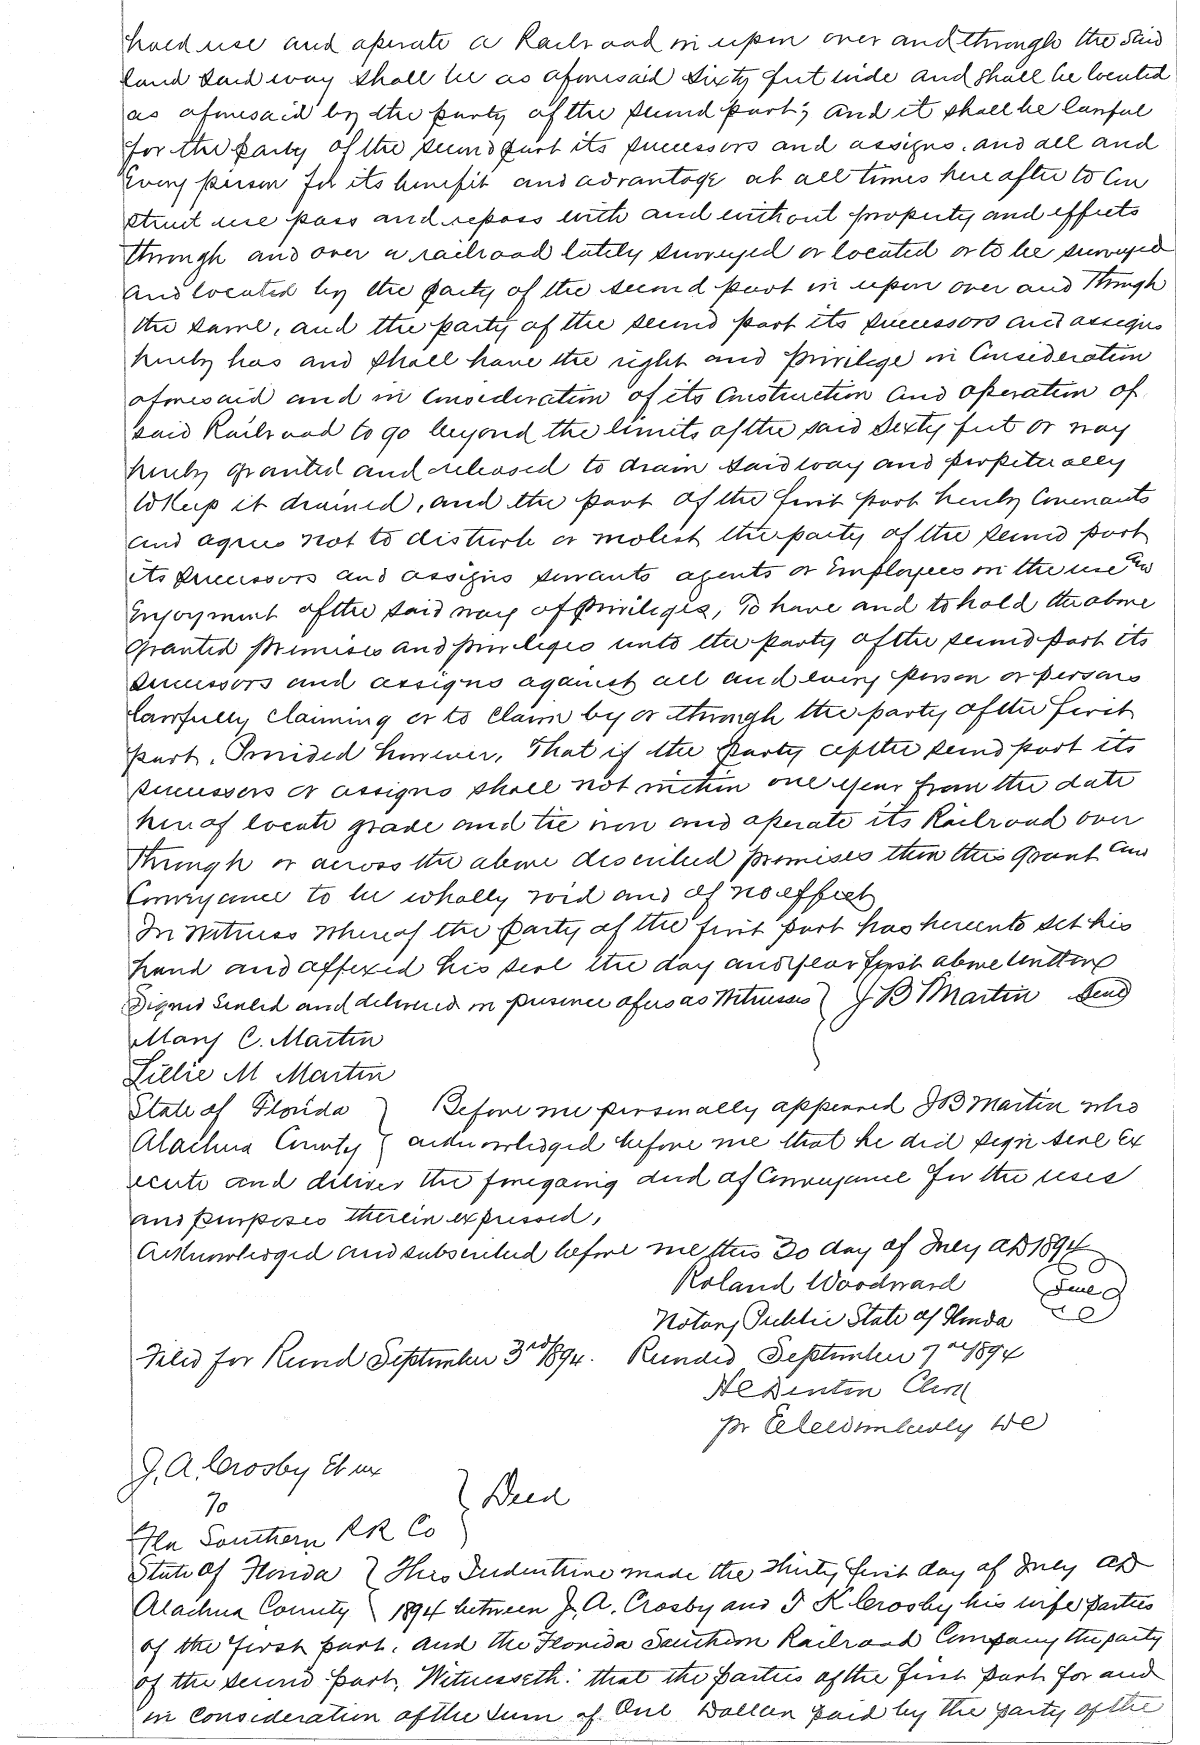 hold use and operate a Railroad in upon over and through the said
land said way shall be as aforesaid sixty feet wide and shall be located
as aforesaid by the party of the second part; and it shall be lawful
for the party of the second part its successors and assigns, and all and
Every person for its benefit and advantage at all times here after to Con
struct use pass and repass with and without property and effects
through and over a railroad lately surveyed or located or to be surveyed
and located by the party of the second part in upon over and through
the same, and the party of the second part its successors and assigns
hereby has and shall have the right and privilege in Consideration
aforesaid and in Consideration of its Construction and operation of
said Railroad to go beyond the limits of the said Sixty feet or way
hereby granted and released to drain said way and perpetually
to Keep it drained, and the part of the first part hereby Covenants
and agrees not to disturb or molest the party of the second part
its successors and assigns servants agents or Employees in the use and
Enjoyment of the said way of privileges, To have and to hold the above
granted premises and privileges unto the party of the second part its
successors and assigns against all and every person or persons
lawfully claiming or to claim by or through the party of the first
part. Provided however, That if the party of the second part its
successers or assigns shall not within one year from the date
hereof locate grade and tie iron and operate its Railroad over
through or across the above described promises then this grant and
Conveyance to be wholly void and of no effect
In witness whereof the party of the first part has hereunto set his
hand and affixed his seal the day and year first above written
Signed Sealed and delivered in presence of us as Witnesses } J B Martin Seal
Mary C. Martin
Lillie M Martin
State of Florida } Before me personally appeared J B Martin who
Alachua County } acknowledged before me that he did sign seal Ex
ecute and deliver the foregoing deed of Conveyance for the uses
and purposes therein expressed,
Acknowledged and subscribed before me this 30 day of July AD 1894
Roland Woodward Seal
Notary Public State of Florida
Filed for Record September 3rd 1894. Recorded September 7th 1894
H C Denton Clerk
pr DC
J. A. Crosby Et ux
To } Deed
Fla Southern RR Co
State of Florida } This Indenture made the Thirty first day of July AD
Alachua County } 1894 between J. A. Crosby and T K Crosby his wife parties
of the first part, and the Florida Southern Railroad Company the party
of the second part, Witnesseth: that the parties of the first part for and
in consideration of the sum of One Dollar paid by the party of the